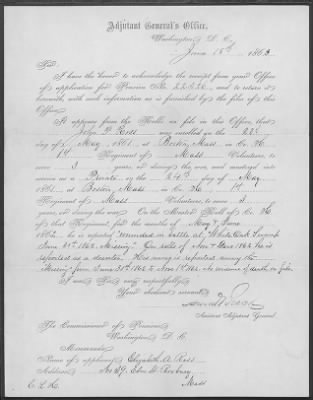 Adjutant General's Office,
Washington, D. C.,
June 18th, 1863
Sir:
I have the honor to acknowledge the receipt from your Office
of application for Pension No. 22826, and to return it
herewith, with such information as is furnished by the files of this
Office.
It appears from the Rolls on file in this Office, that
John P. Ross was enrolled on the 22d
day of May, 1861, at Boston, Mass in Co. K,
1st Regiment of Mass Volunteers, to
serve 3 years, or during the war, and mustered into
service as a Private on the 24th day of May,
1861, at Boston, Mass in Co. K, 1st
Regiment of Mass Volunteers, to serve 3
years, or during the war. On the Muster Roll of Co. K
of that Regiment, for the months of May & June
1862, he is reported "wounded in battle at White Oak Swamp
June 1862. Missing." On rolls of Nov & Dec 1862 he is
reported as a deserter.
"Missing" from June 30th 1862 to Nov 1st 1862. No evidence of death on file.
I am, Sir, very respectfully,
Your obedient servant,
Assistant Adjutant General.
The Commissioner of Pensions,
Washington, D. C.
Memoranda:
Name of applicant, Elizabeth A. Ross
Address, No 29, Elm St Roxbury
Mass